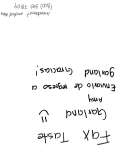 Fax Taste
Garland :)
Amy
Envialo de regreso a
garland Gracias!